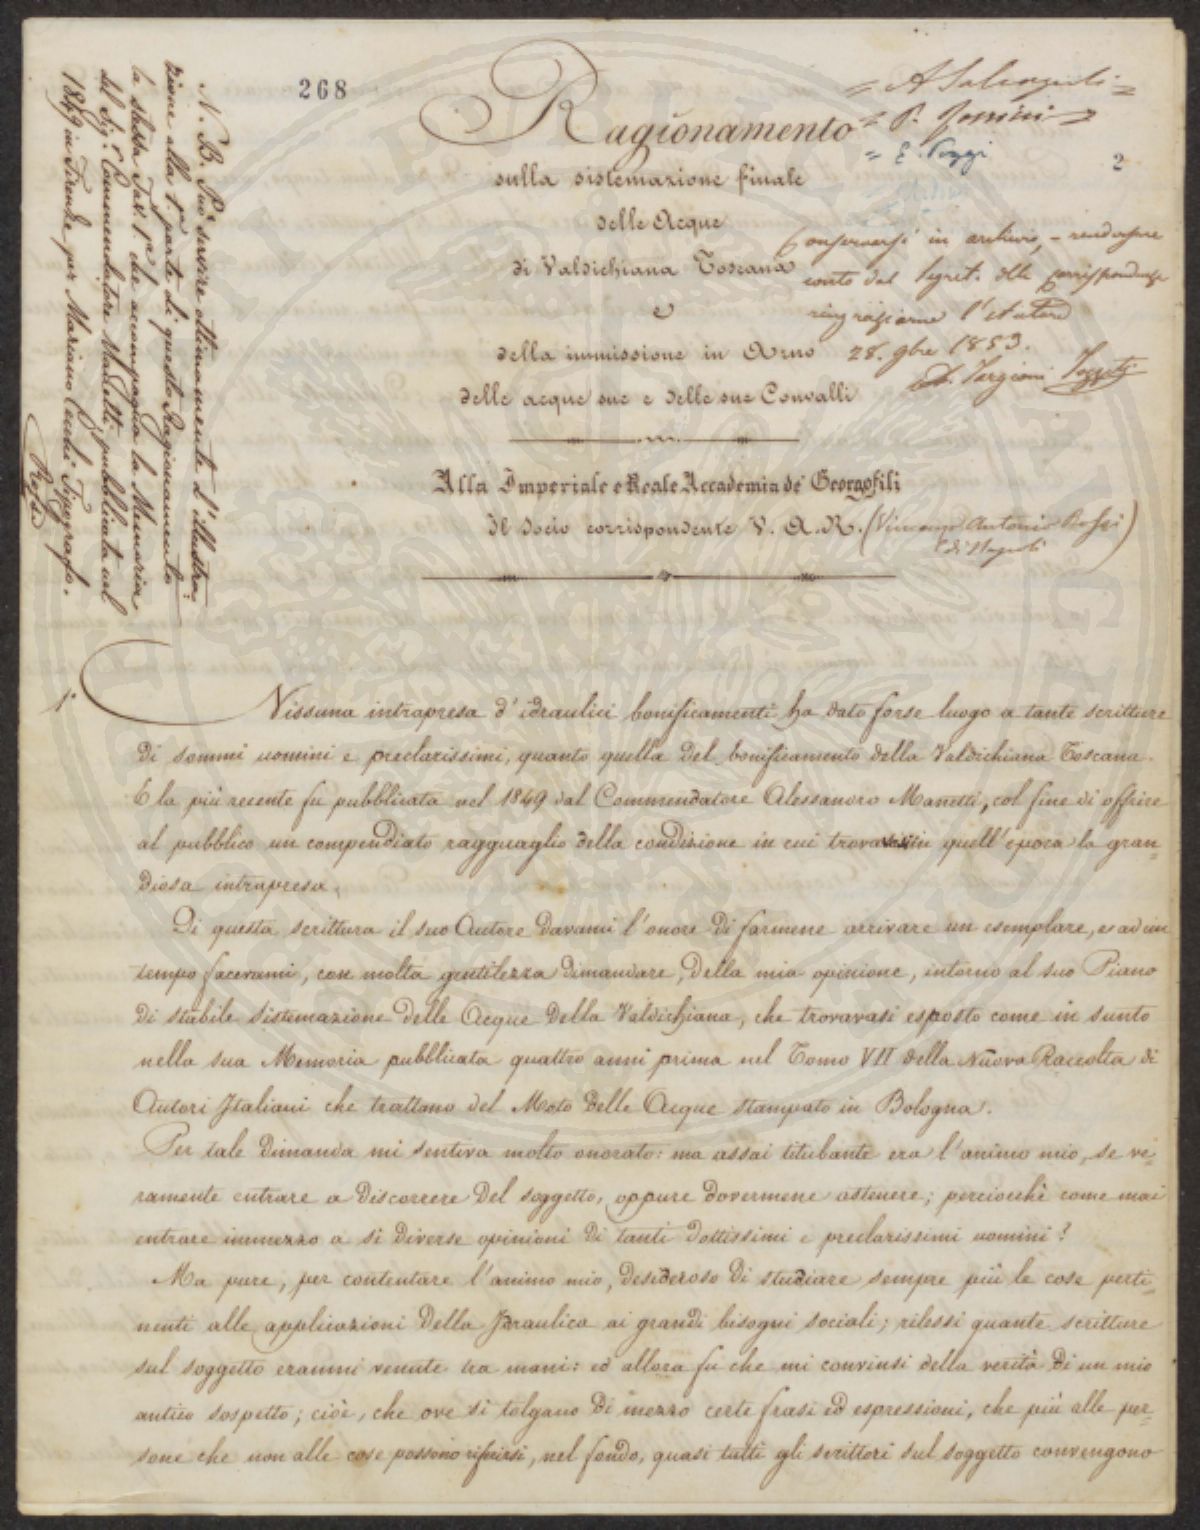 268
= A Salvagnoli =
= P. Tonnini =
= E. Poggi
2
Ragionamento
sulla sistemazione finale
delle Acque
di Valdichiana Toscana
e
della immissione in Arno
delle acque sue e delle sue Convalli
Conservarsi in archivio, – rendersene
conto dal Segret. delle Corrispondenze
ringraziarne l'Autore
28. 9bre 1853.
A. Targioni Tozzetti
Alla Imperiale e Reale Accademia de' Georgofili
Il Socio corrispondente V. A. R. (Vincenzo Antonio Rossi
di Napoli)
N. B. Può servire ottimamente d'illustra:
zione alla 1ª parte di questo Ragionamento
la stessa Tav. 1ª che accompagna la Memoria
del Sig.r Commendatore Manetti, pubblicata nel
1849 in Firenze per Mariano Cecchi Tipografo.
Rossi
1º
Nissuna intrapresa d'idraulici bonificamenti ha dato forse luogo a tante scritture
di sommi uomini e preclarissimi, quanto quella del bonificamento della Valdichiana Toscana.
E la più recente fu pubblicata nel 1849 dal Commendatore Alessandro Manetti, col fine di offrire
al pubblico un compendiato ragguaglio della condizione in cui trovavasi in quell'epoca la gran=
diosa intrapresa.
Di questa scrittura il suo Autore davami l'onore di farmene arrivare un esemplare, e ad un
tempo facevami, con molta gentilezza dimandare, della mia opinione, intorno al suo Piano
di stabile sistemazione delle Acque della Valdichiana, che trovavasi esposto come in sunto
nella sua Memoria pubblicata quattro anni prima nel Tomo VII della Nuova Raccolta di
Autori Italiani che trattano del Moto delle Acque stampato in Bologna.
Per tale dimanda mi sentiva molto onorato: ma assai titubante era l'animo mio, se ve=
ramente entrare a discorrere del soggetto, oppure dovermene astenere; perciocchè come mai
entrare immezzo a sì diverse opinioni di tanti dottissimi e preclarissimi uomini?
Ma pure, per contentare l'animo mio, desideroso di studiare sempre più le cose perti=
nenti alle applicazioni della Idraulica ai grandi bisogni sociali; rilessi quante scritture
sul soggetto eranmi venute tra mani: ed allora fu che mi convinsi della verità di un mio
antico sospetto; cioè, che ove si tolgano di mezzo certe frasi ed espressioni, che più alle per=
sone che non alle cose possono riferirsi, nel fondo, quasi tutti gli scrittori sul soggetto convengono